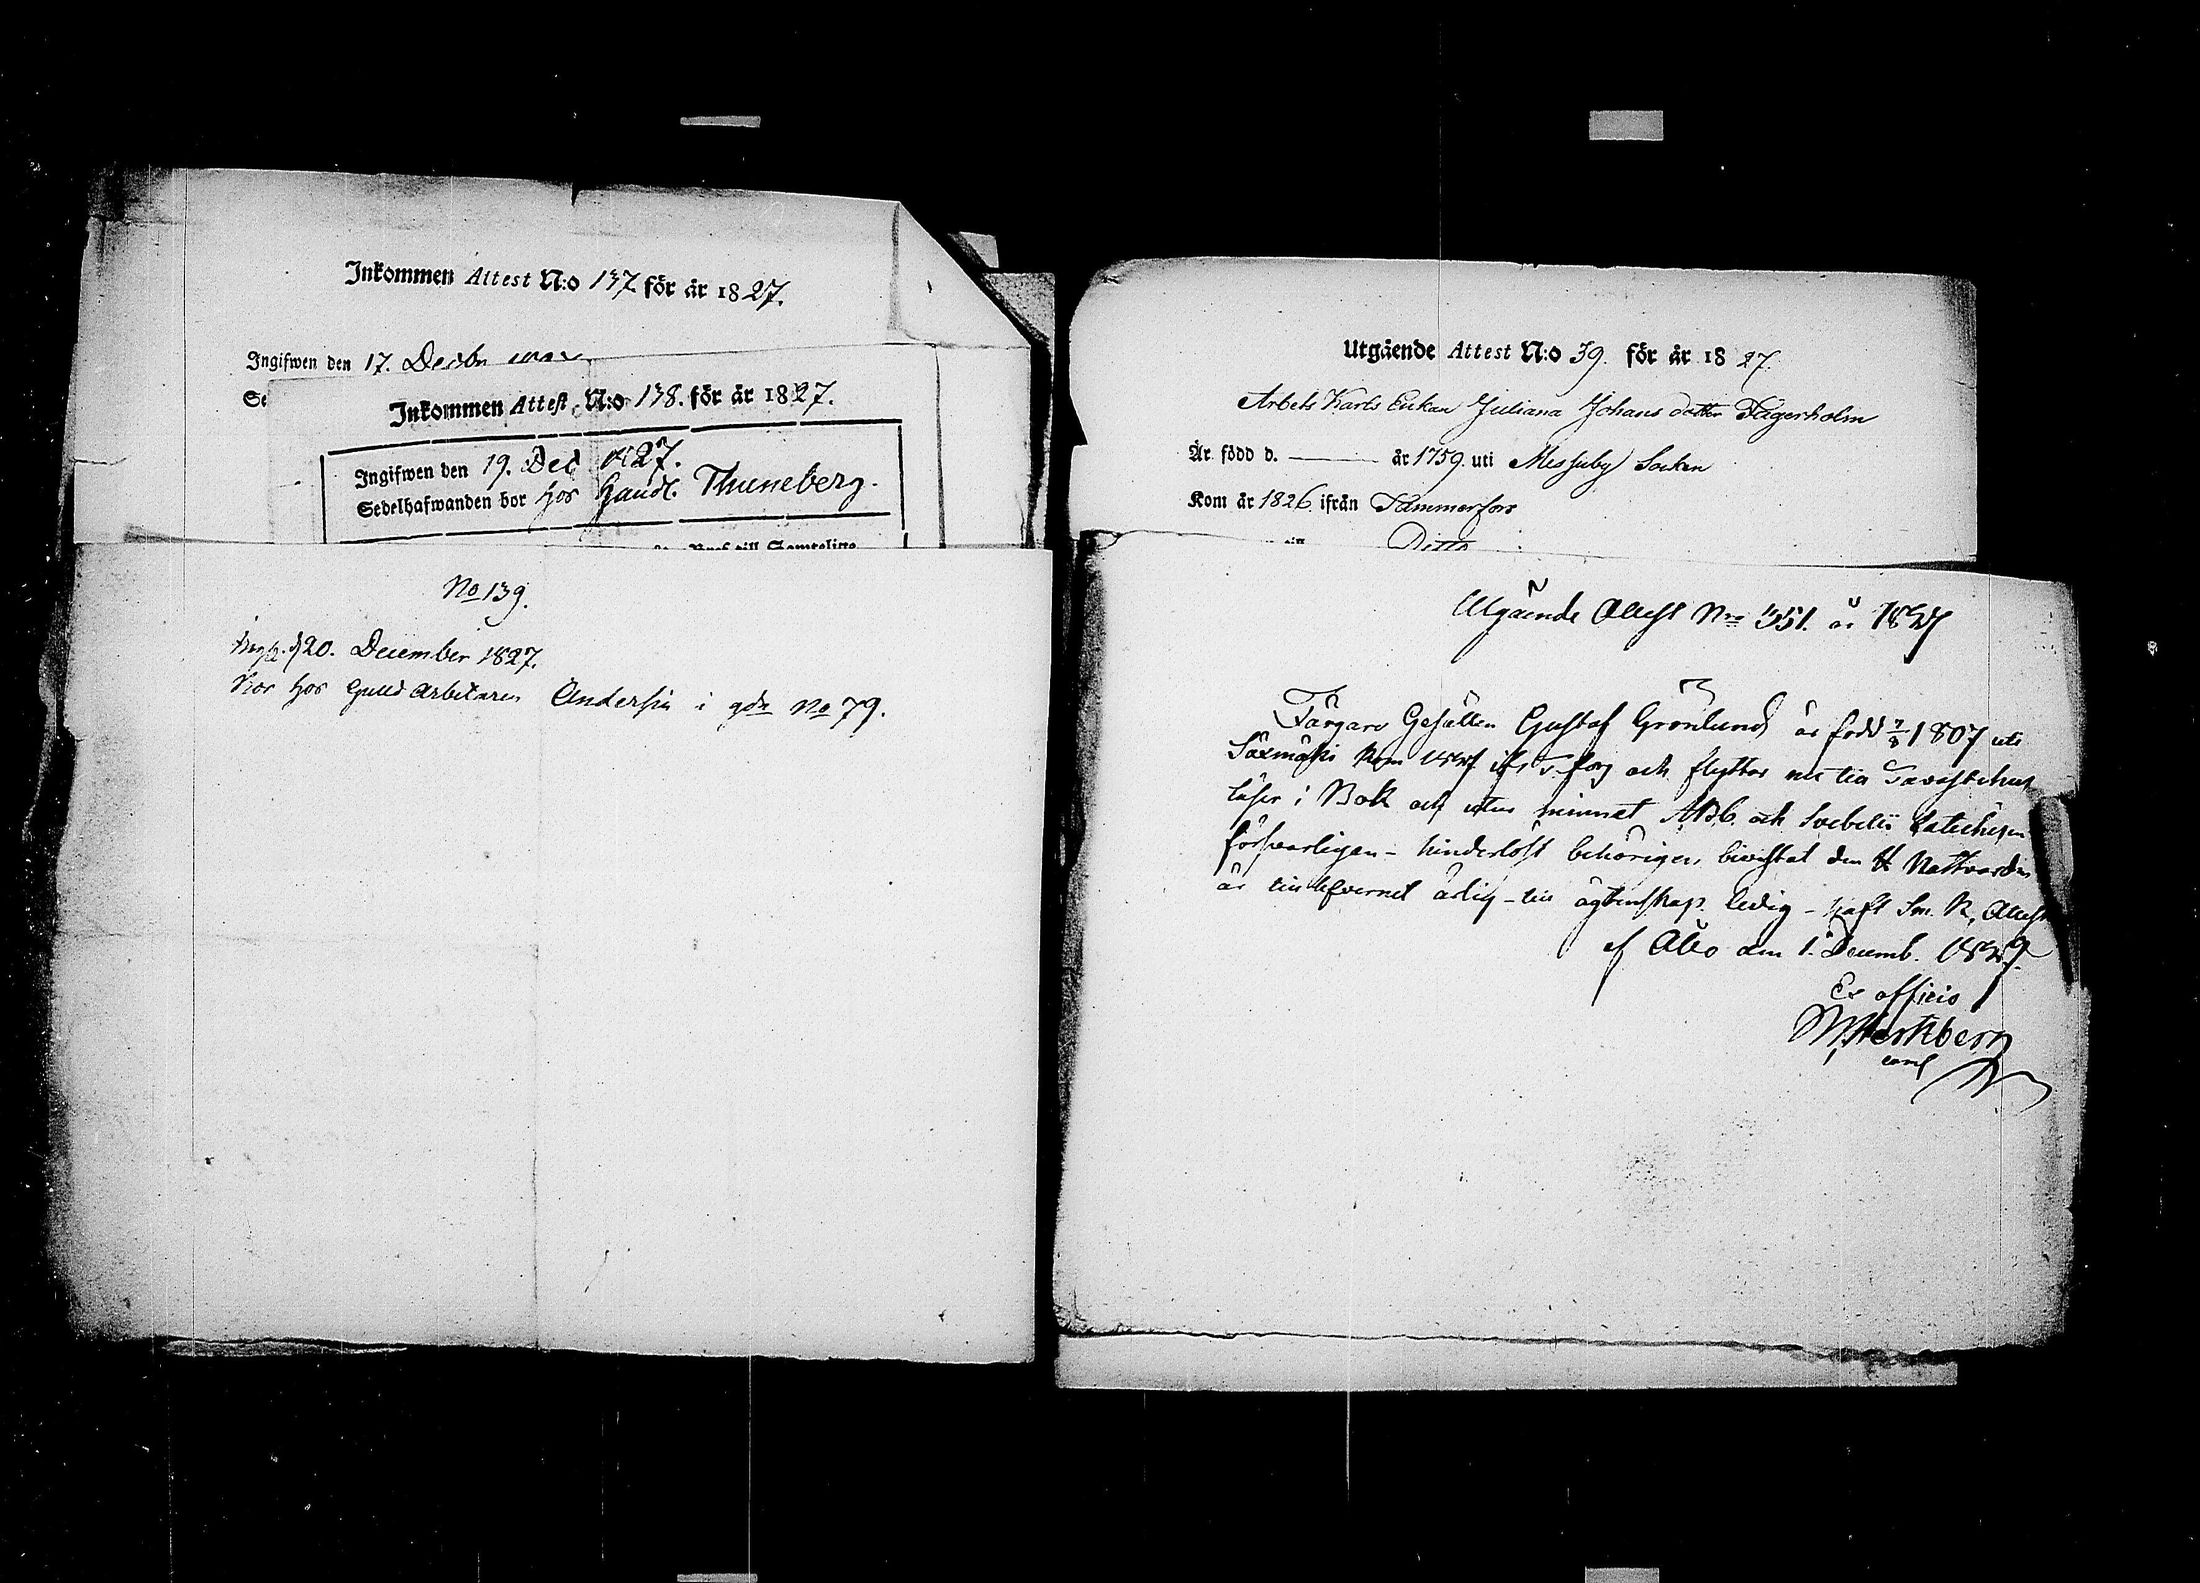 Inkommen Attest N:o 137 för år 1827.
Ingifwen den 17. Decbr
Se
Inkommen Attest N:o 138. för år 1827.
Ingifwen den 19. Dec 1827.
Sedelhafwanden bor hos Handl. Thuneberg.
No 139.
Ingif. d 20. December 1827.
bor hos Guld Arbetaren Andersin i gdn No 79.
Utgående Attest N:o 39. för år 1827.
Arbets Karls Enkan Juliana Johans dotter Fagerholm
Är född d. ——— år 1759. uti Messuby Socken
Kom år 1826. ifrån Tammerfors
Ditto
Utgående Attest Nro 351. år 1827
Färgare Gesällen Gustaf Grönlund är född 7/8 1807 uti
Säxmäki kom 1827 ifr. T.fors och flyttar nu till Tavastehus
läser i Bok och utur minnet ABC. och Svebelii Catechesen
försvarligen - hinderlöst behörigen bivistat den H Nattvarden
är till lefvernet ärlig - till ägtenskap ledig - haft Sm. K, Attest
af Åbo den 1. Decemb. 1827.
Ex officio